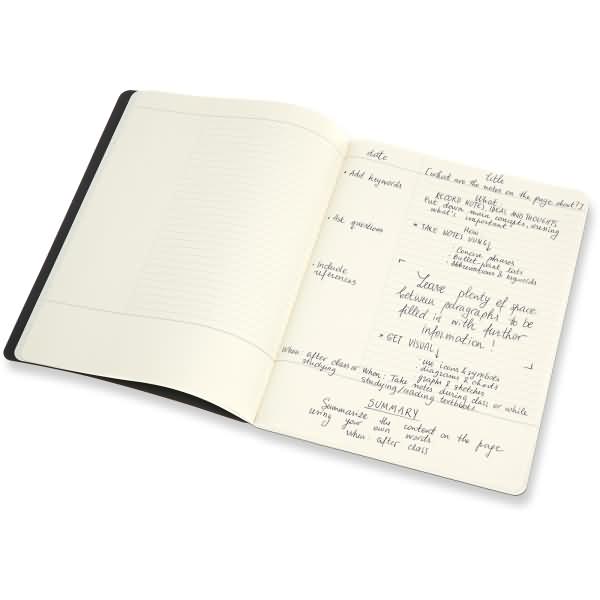 date
title
[what are the notes on the page about?]
• Add keywords
What
RECORD NOTES, IDEAS AND THOUGHTS
Put down main concepts, stressing
what's important
• Ask questions
How
* TAKE NOTES USING ↓
· Concise phrases
· bullet point lists
· abbreviations & keywords
• Include
references
Leave plenty of space
between paragraphs to be
filled in with further
information!
* GET VISUAL ↓
· use icons & symbols
· diagrams & charts
· graphs & sketches
When: after class or
studying
When: Take notes during class or while
studying/reading textbooks
SUMMARY
Summarize the content on the page
using your own words
When: after class